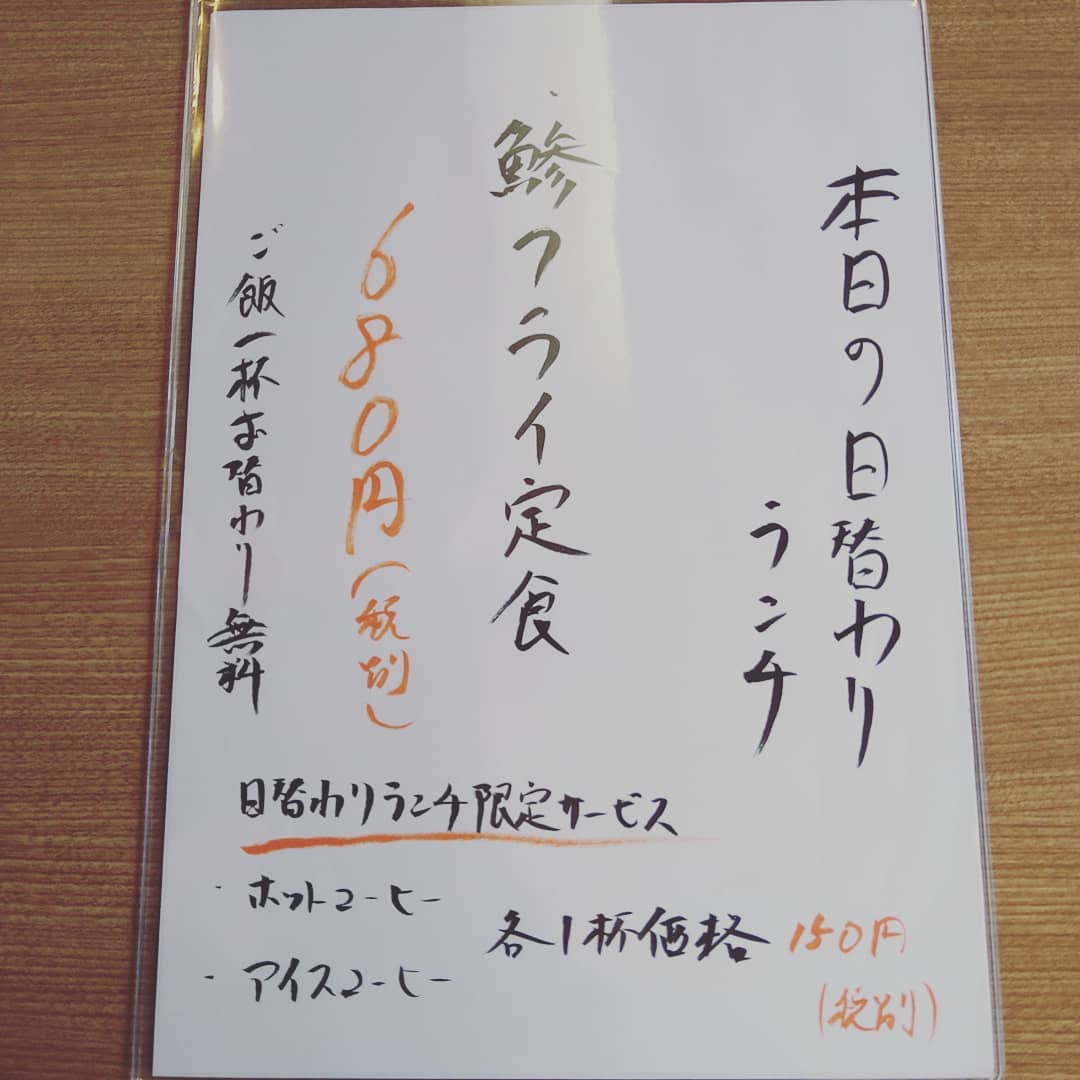 本日の日替わり
ランチ
鯵フライ定食
680円(税別)
ご飯一杯お替わり無料
日替わりランチ限定サービス
・ホットコーヒー
・アイスコーヒー
各1杯価格 150円
(税別)